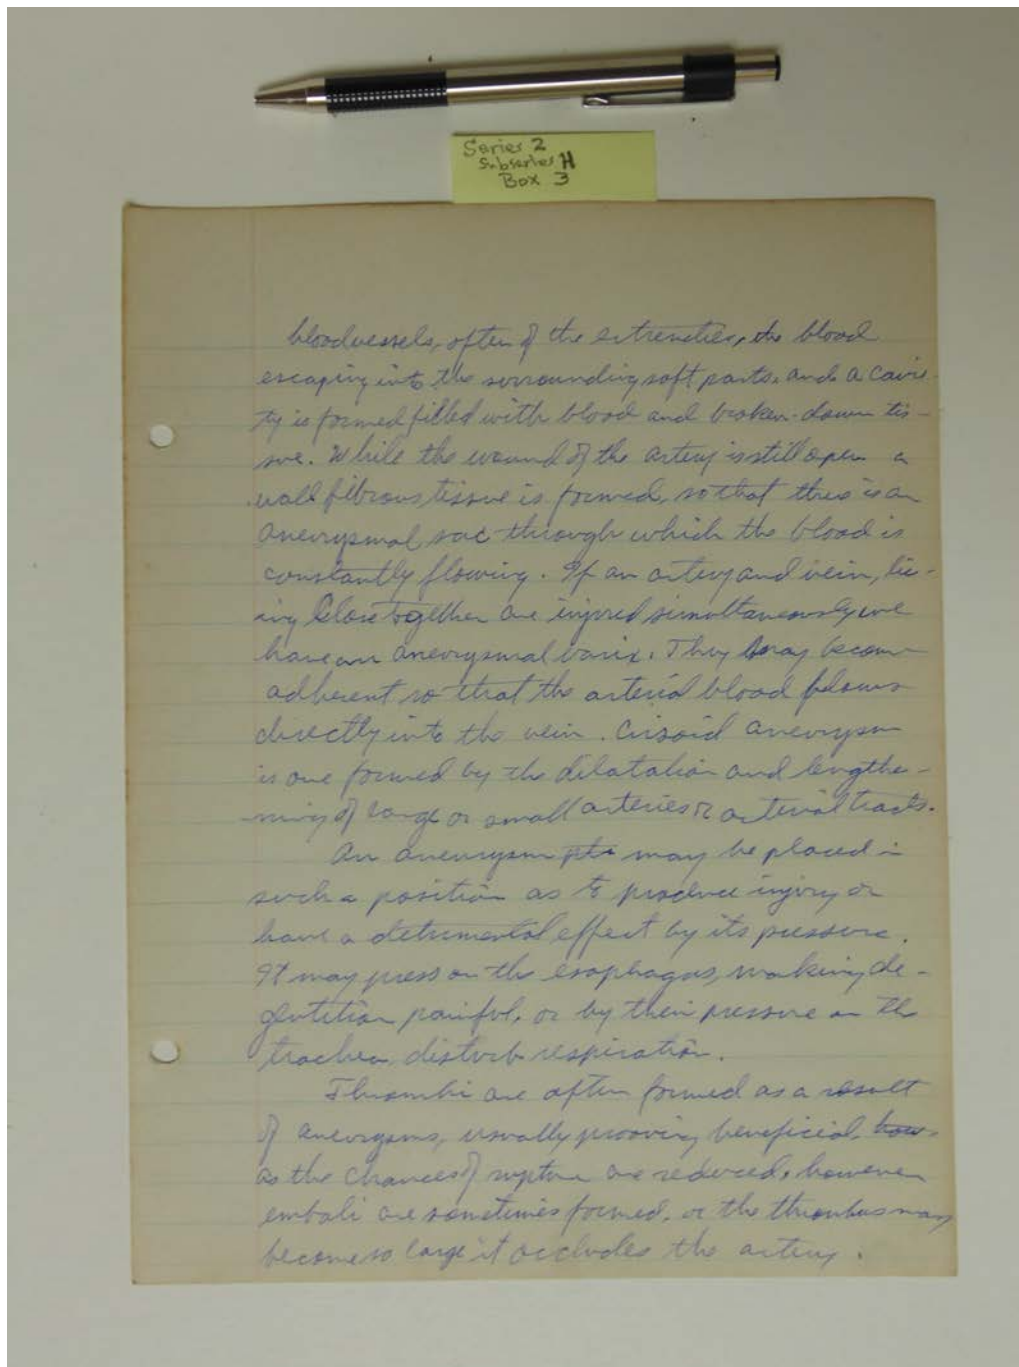 Series 2
Subseries H
Box 3
bloodvessels, often of the extremeties, the blood
escaping into the surrounding soft parts, and a cavi-
ty is formed filled with blood and broken-down tis-
sue. While the wound of the artery is still open a
wall fibrous tissue is formed, so that there is an
aneurysmal sac through which the blood is
constantly flowing. If an artery and vein, ly-
ing close together are injured simultaneously we
have an aneurysmal varix. They may become
adherent so that the arterial blood flows
directly into the vein. Cirsoid aneurysm
is one formed by the dilatation and lengthe-
ning of large or small arteries or arterial tracts.
An aneurysm may be placed in
such a position as to produce injury or
have a detrimental effect by its pressure.
It may press on the esophagus, making de-
glutition painful, or by their pressure on the
trachea disturb respiration.
Thrombi are often formed as a result
of aneurysms, usually prooving beneficial, how-
as the chances of rupture are reduced, however
emboli are sometimes formed, or the thrombus may
become so large it occludes the artery.